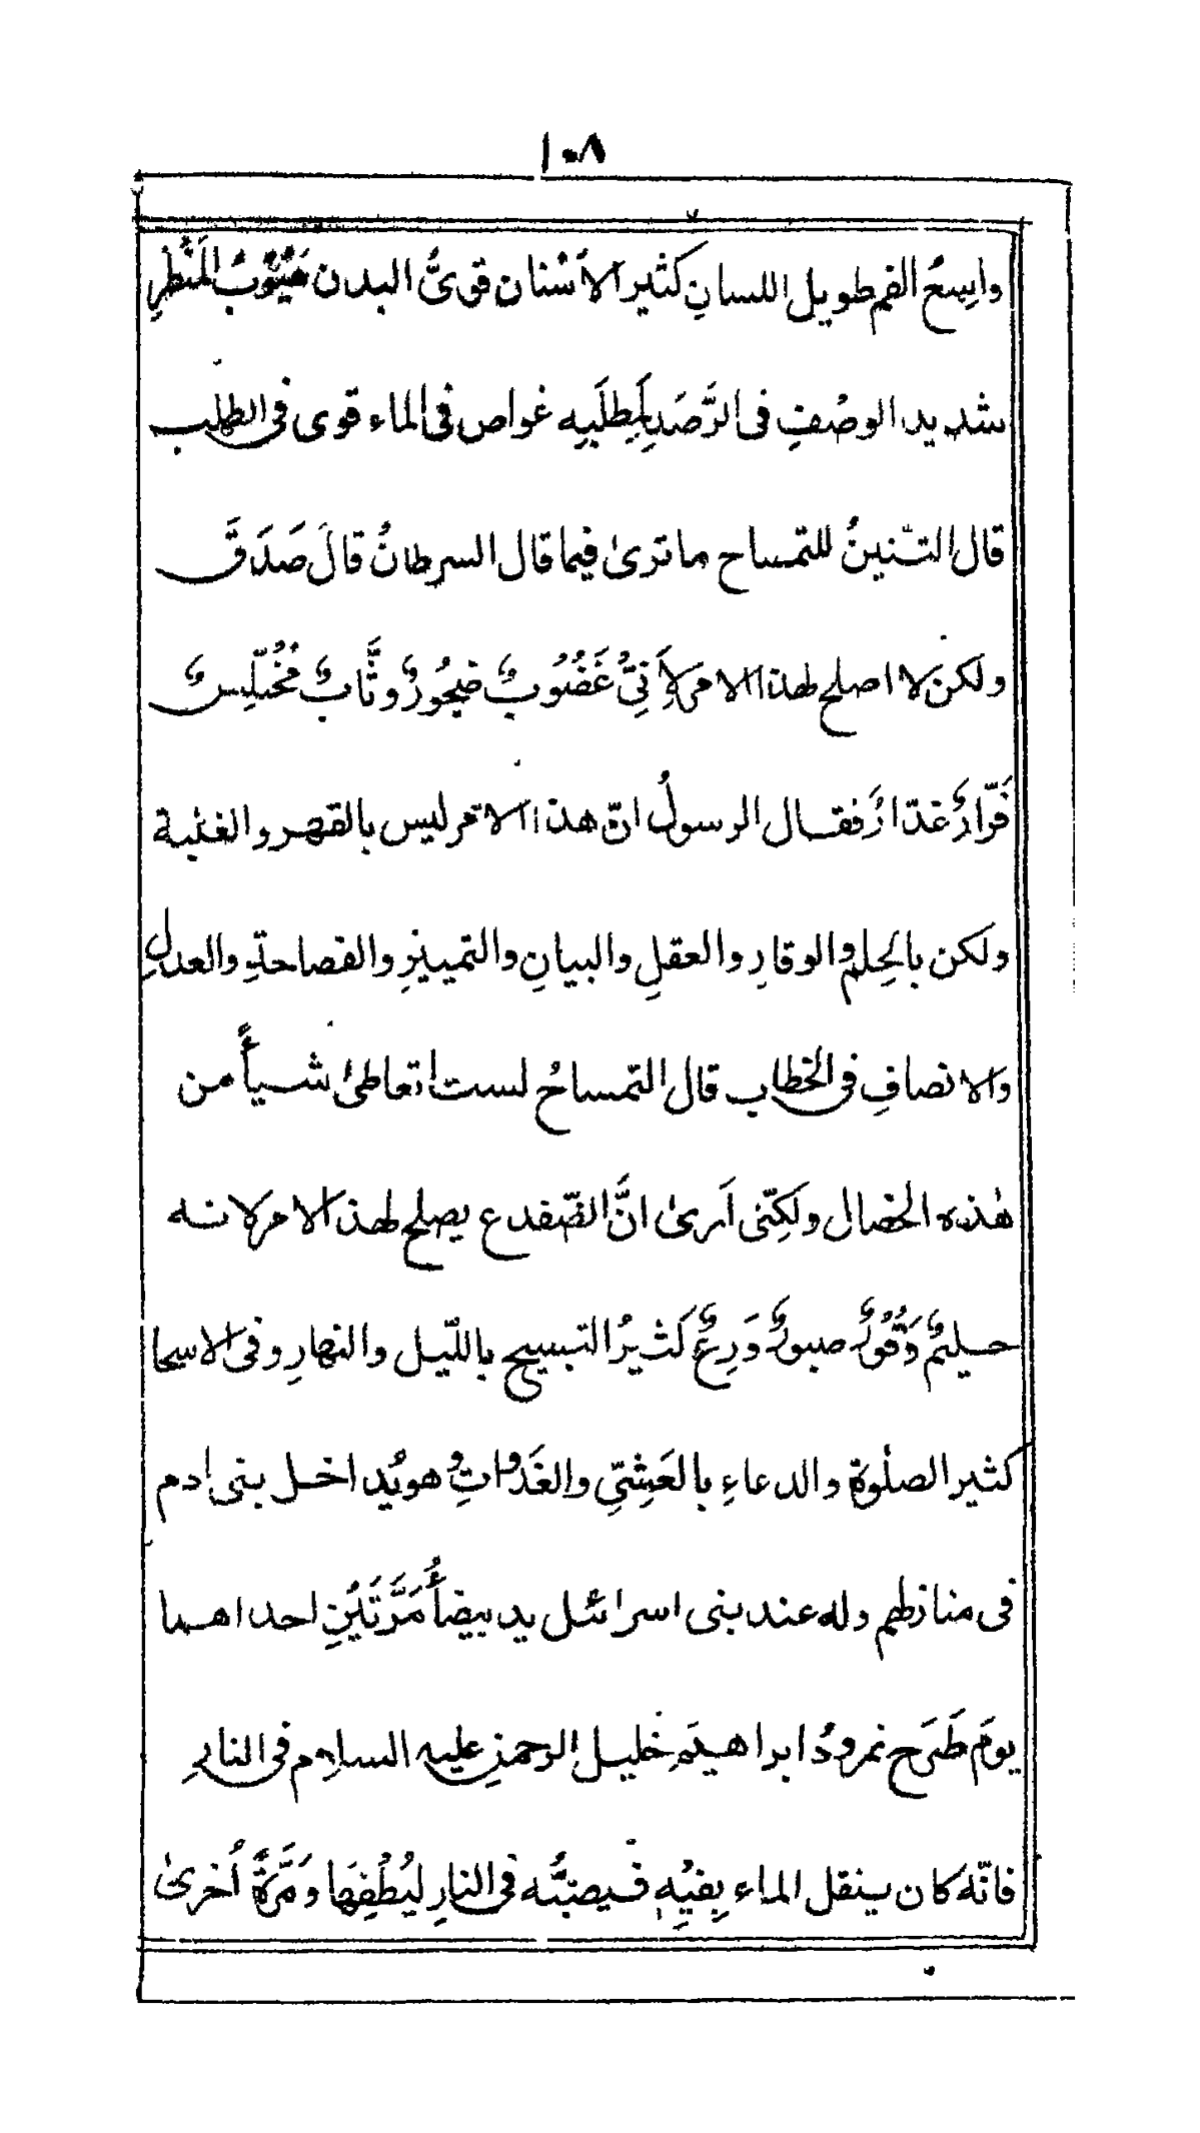 ١٠٨
واسِعُ الفم طويل اللسانِ كثير الاَسْنان قوىُّ البدن مَهْيُوبُ المَنْظَرِ
شديد الوصْفِ فى الرَّصَدِ لِمَطلَبِه غواص فى الماء قوى فى الطلب
قال التـنينُ للتمساح ما ترىٰ فيما قال السرطانُ قالَ صَدَقَ
ولكن لا اصلح لهذا الامر لِاَنِّىْ غَضُوبٌ ضَجُورٌ وثَّابٌ مُخْتَلِسٌ
فَرّارٌ غدّارٌ فقال الرسولُ انّ هذا الامر ليس بالقهر والغلبة
ولكن بالحِلم والوقارِ والعقلِ والبيانِ والتمييزِ والفصاحةِ والعدلِ
والانصافِ فى الخطاب قال التمساحُ لست اتعاطىٰ شيأً من
هٰذه الخصال ولكِنّى اَرىٰ انَّ الضّفدع يصلح لهذا الامر لانه
حليمٌ وَقُوْرٌ صبورٌ وَرِعٌ كَثيرُ التسبيح بالليل والنهارِ وفى الاسحا
كثير الصلٰوة والدعاءِ بالعَشِىِّ والغَدَواتِ وهو يُداخل بنى ادم
فى منازلهم وله عند بنى اسرائل يد بيضأً مَرَّتَيْنِ احداهما
يومَ طَرَح نمرودُ ابراهيمَ خليل الرحمنِ عليه السلام فى النارِ
فانّه كان ينقل الماء بِفيْهِ فيصبُّه فى النارِ لِيُطْفِهَا وَمَرَّةً اُخرىٰ